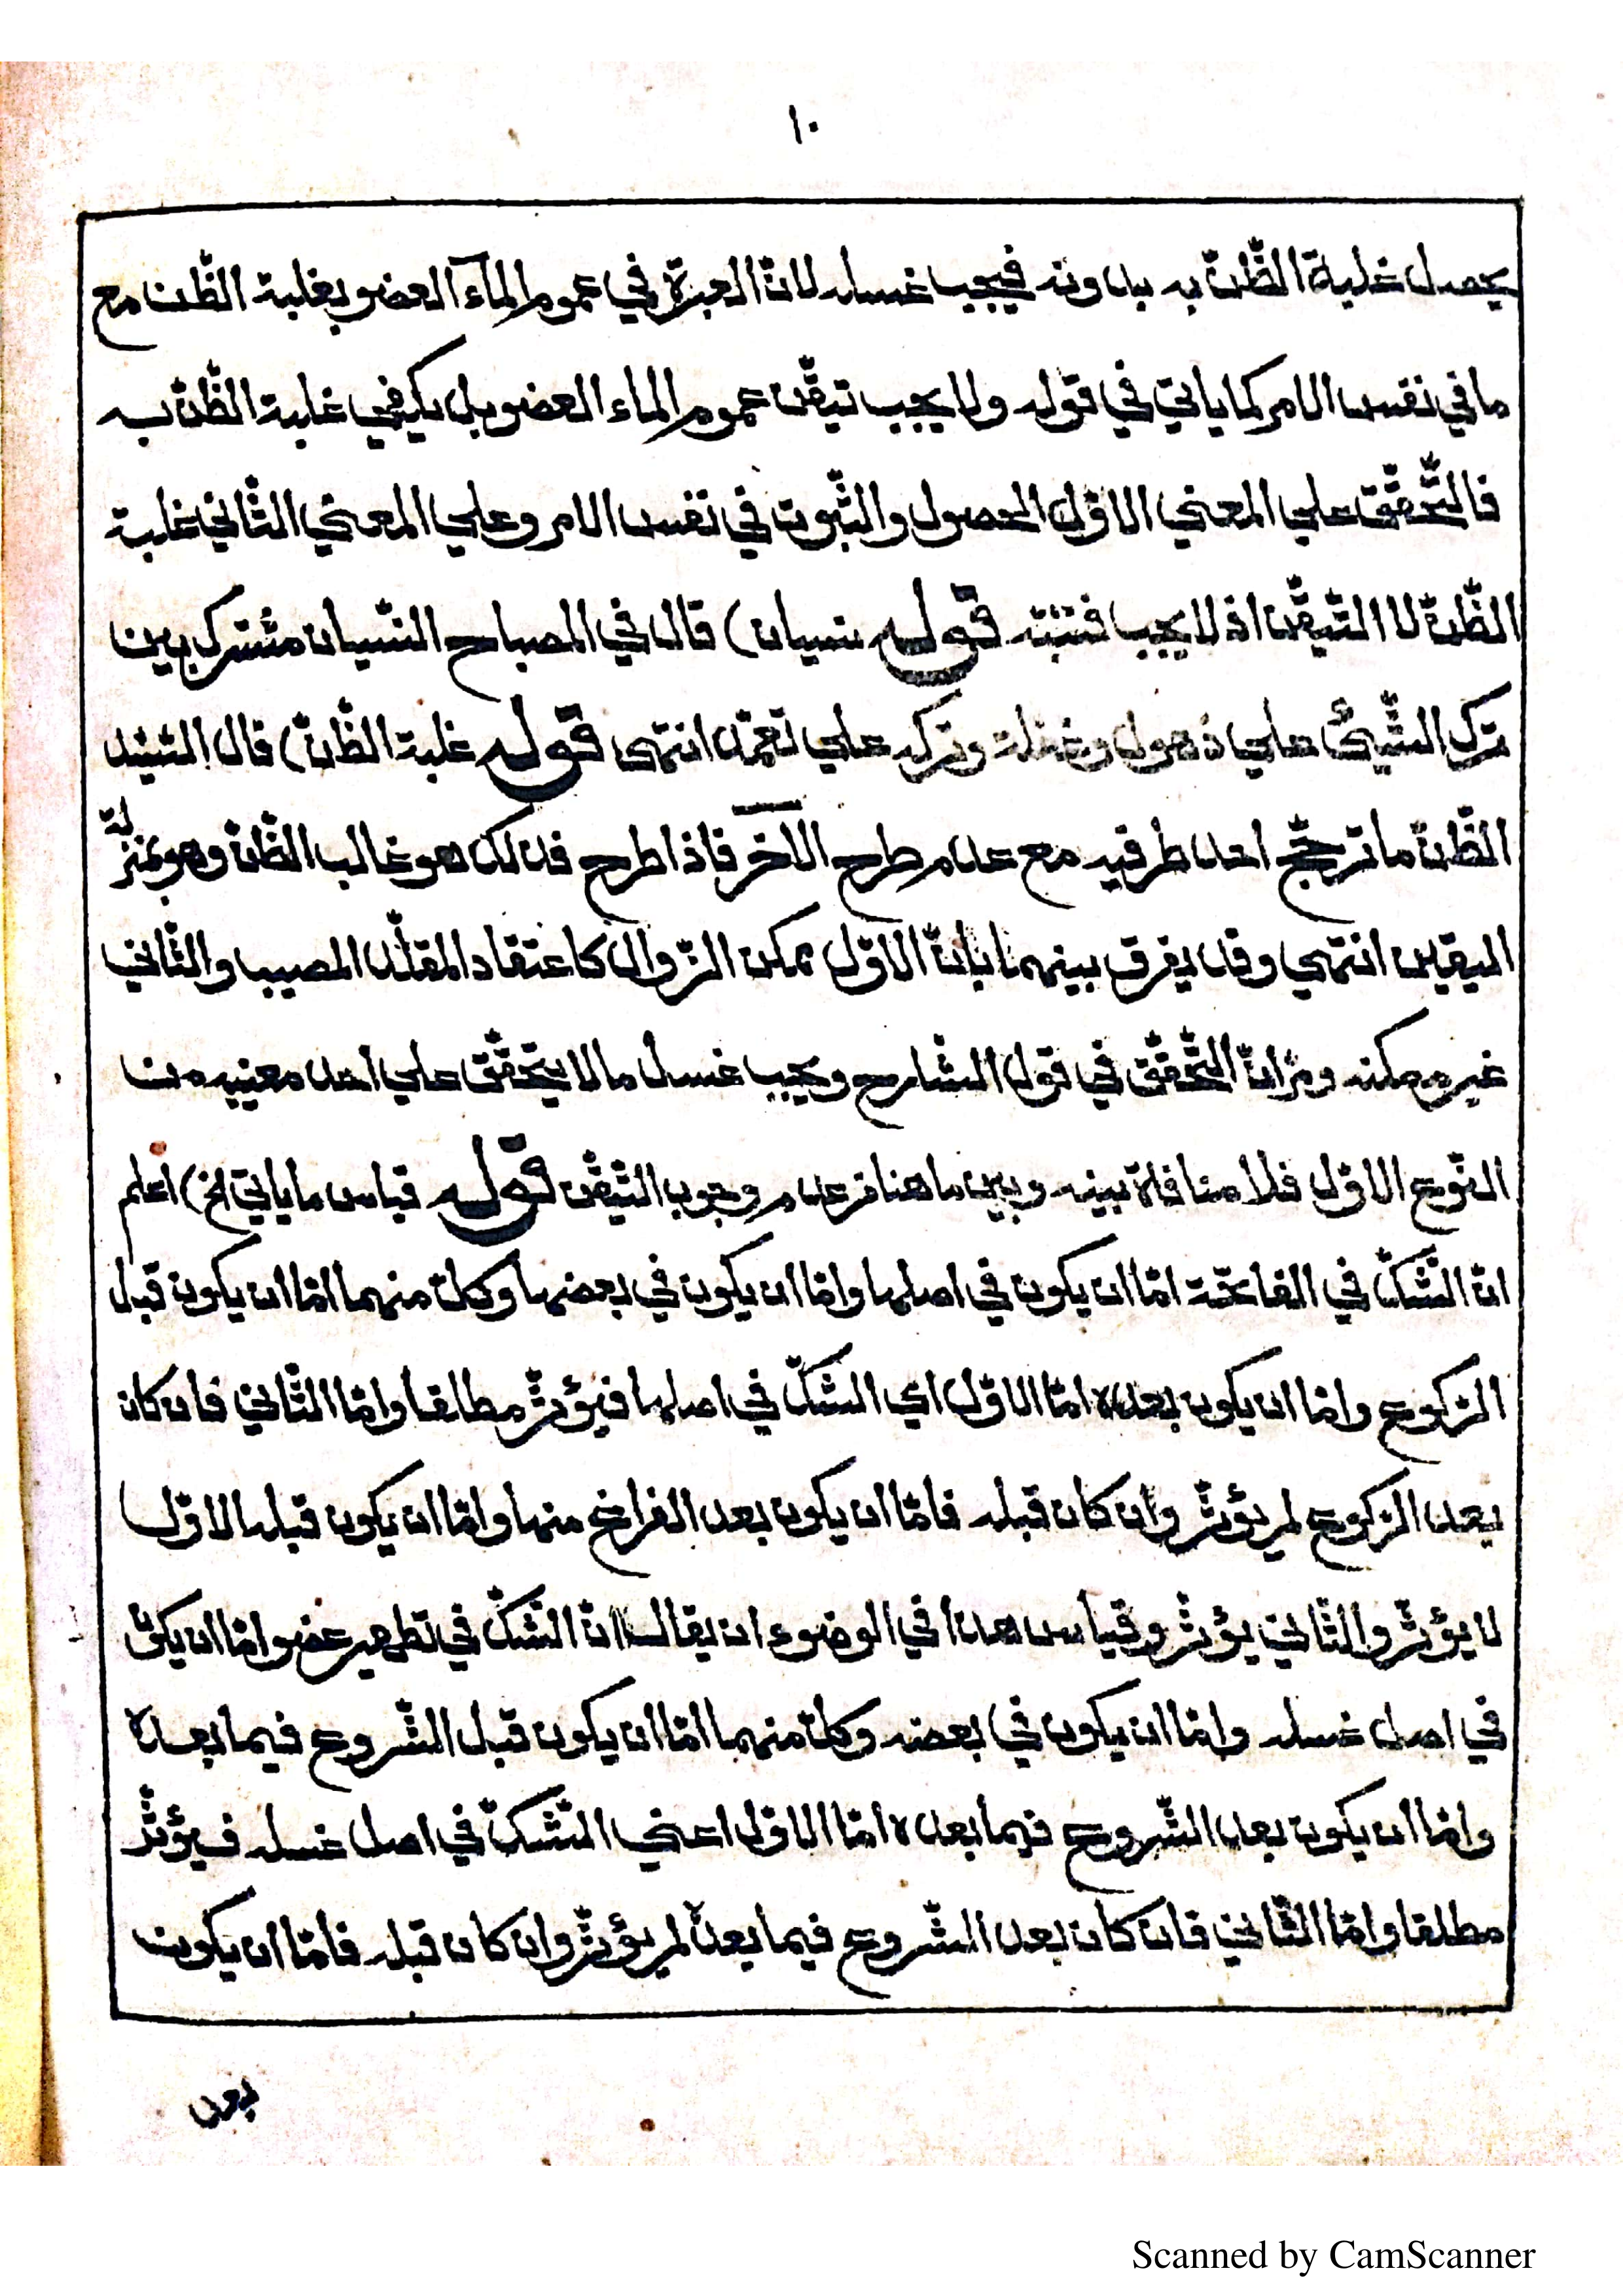 ١٠
يحصل غلبة الظّنّ به بدونه فيجب غسله لانّ العبرة في عموم المآء العضو بغلبة الظّن مع
ما في نفس الامر كما ياتي في قوله ولا يجب تيقّن عموم الماء العضو بل يكفي غلبة الظّنّ به
فالتّحقّق علي المعني الاوّل الحصول والثّبوت في نفس الامر وعلي المعني الثّاني غلبة
الظّنّ لا التّيقّن اذ لا يجب فتنبّه قوله نسيان) قال في المصباح النّسيان مشترك بين
ترك الشّيئ علي ذهول وغفلة وتركه علي تعمّد انتهى قوله غلبة الظّنّ) قال السّيّد
الظّنّ ما ترجّح احد طرفيه مع عدم طرح الآخر فاذا طرح فذلك هو غالب الظّنّ وهو بمنزلة
اليقين انتهي وقد يفرق بينهما بانّ الاوّل ممكن الزّوال كاعتقاد المقلّد المصيب والثّاني
غير ممكنه ومرّ انّ التّحقّق في قول الشّارح ويجب غسل ما لا يتحقّق علي احد معنييه من
النّوع الاوّل فلا منافاة بينه وبين ما هنا من عدم وجوب التّيقّن قوله قياس ما ياتي الخ) اعلم
انّ الشّكّ في الفاتحة امّا ان يكون في اصلها وامّا ان يكون في بعضها وكلّ منهما امّا ان يكون قبل
الرّكوع وامّا ان يكون بعده امّا الاوّل اي الشّكّ في اصلها فيؤثّر مطلقا وامّا الثّاني فان كان
بعد الرّكوع لم يؤثّر وان كان قبله فامّا ان يكون بعد الفراغ منها وامّا ان يكون قبله الاوّل
لا يؤثّر والثّاني يؤثّر وقياس هذا في الوضوء ان يقال انّ الشّكّ في تطهير عضو امّا ان يكون
في اصل غسله وامّا ان يكون في بعضه وكلّ منهما امّا ان يكون قبل الشّروع فيما بعده
وامّا ان يكون بعد الشّروع فيما بعده امّا الاوّل اعني الشّكّ في اصل غسله فيؤثّر
مطلقا وامّا الثّاني فان كان بعد الشّروع فيما بعده لم يؤثّر وان كان قبله فامّا ان يكون
بعد
Scanned by CamScanner